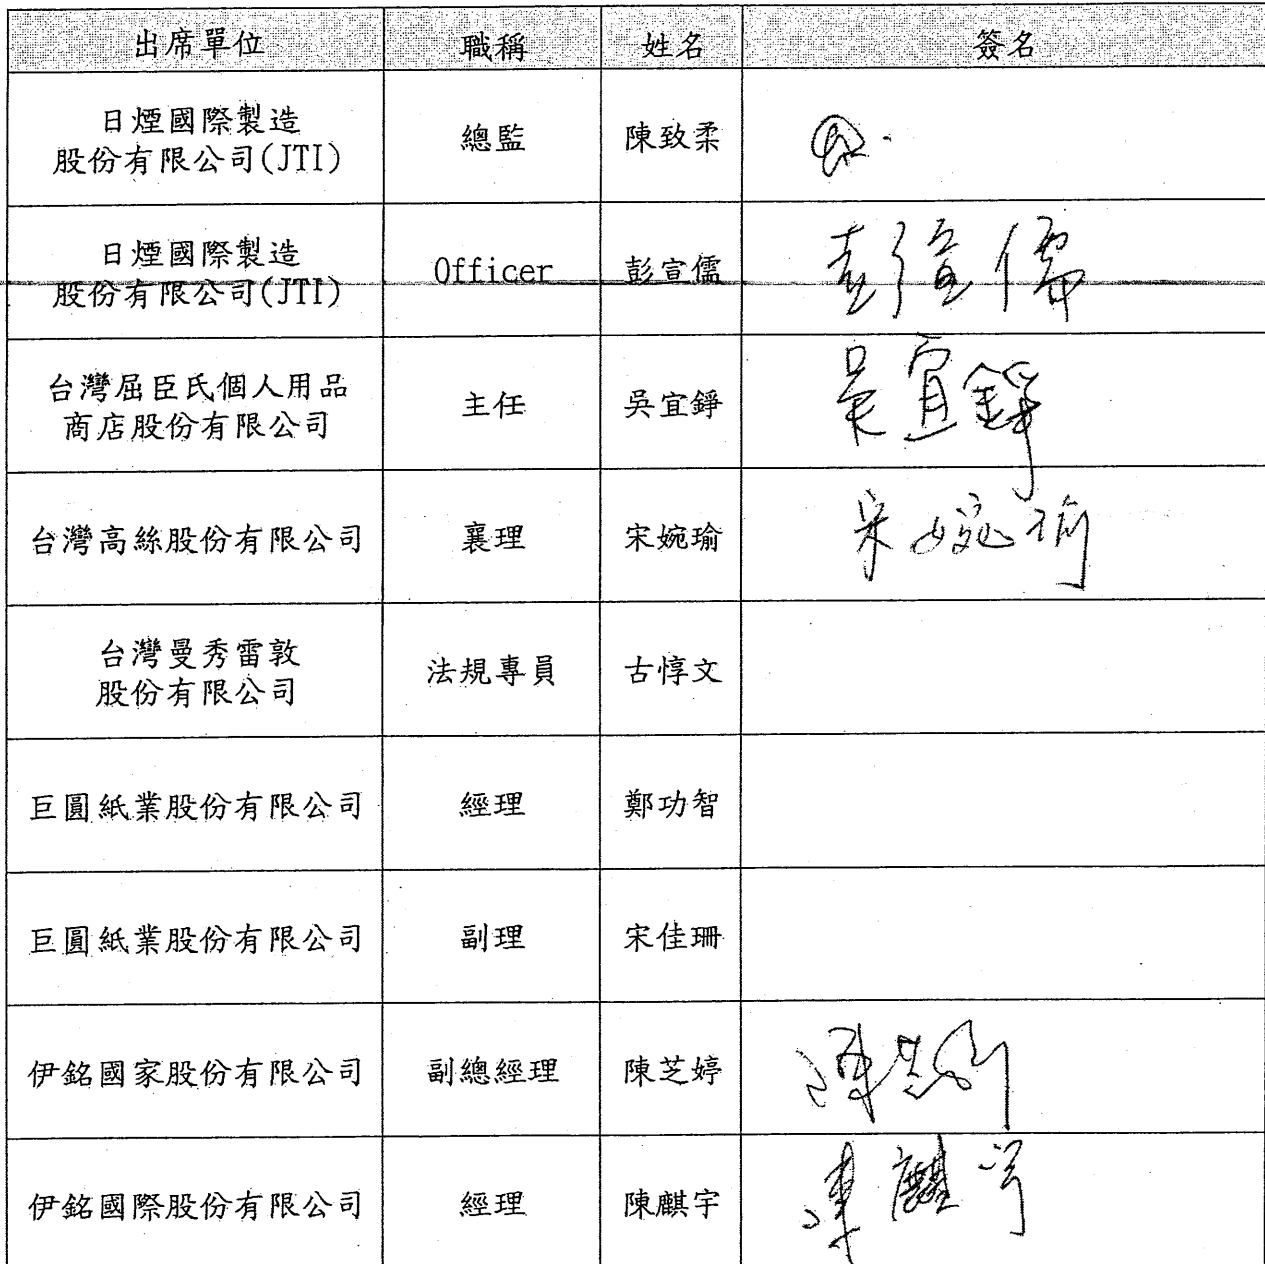 出席單位 職稱 姓名 簽名
日煙國際製造
股份有限公司(JTI) 總監 陳致柔
日煙國際製造
股份有限公司(JTI) Officer 彭宣儒 彭宣儒
台灣屈臣氏個人用品
商店股份有限公司 主任 吳宜錚 吳宜錚
台灣高絲股份有限公司 襄理 宋婉瑜 宋婉瑜
台灣曼秀雷敦
股份有限公司 法規專員 古惇文
巨圓紙業股份有限公司 經理 鄭功智
巨圓紙業股份有限公司 副理 宋佳珊
伊銘國家股份有限公司 副總經理 陳芝婷
伊銘國際股份有限公司 經理 陳麒宇 陳麒宇